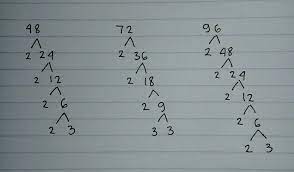 48 72 96
2 24 2 36 2 48
2 12 2 18 2 24
2 6 2 9 2 12
2 3 3 3 2 6
2 3